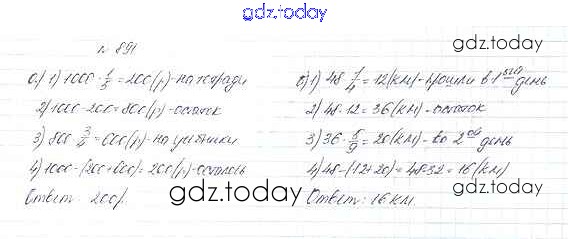 gdz.today
№ 891
gdz.today
а) 1) 1000 · 1/5 = 200 (р) - на тетради
2) 1000 - 200 = 800 (р) - остаток
3) 800 · 3/4 = 600 (р) - на учебники
4) 1000 - (200 + 600) = 200 (р) - осталось
Ответ: 200р.
б) 1) 48 · 1/4 = 12 (км) - прошли в 1ый день
2) 48 - 12 = 36 (км) - остаток
3) 36 · 5/9 = 20 (км) - во 2ой день
4) 48 - (12 + 20) = 48 - 32 = 16 (км)
Ответ: 16 км.
gdz.today
gdz.today
gdz.today